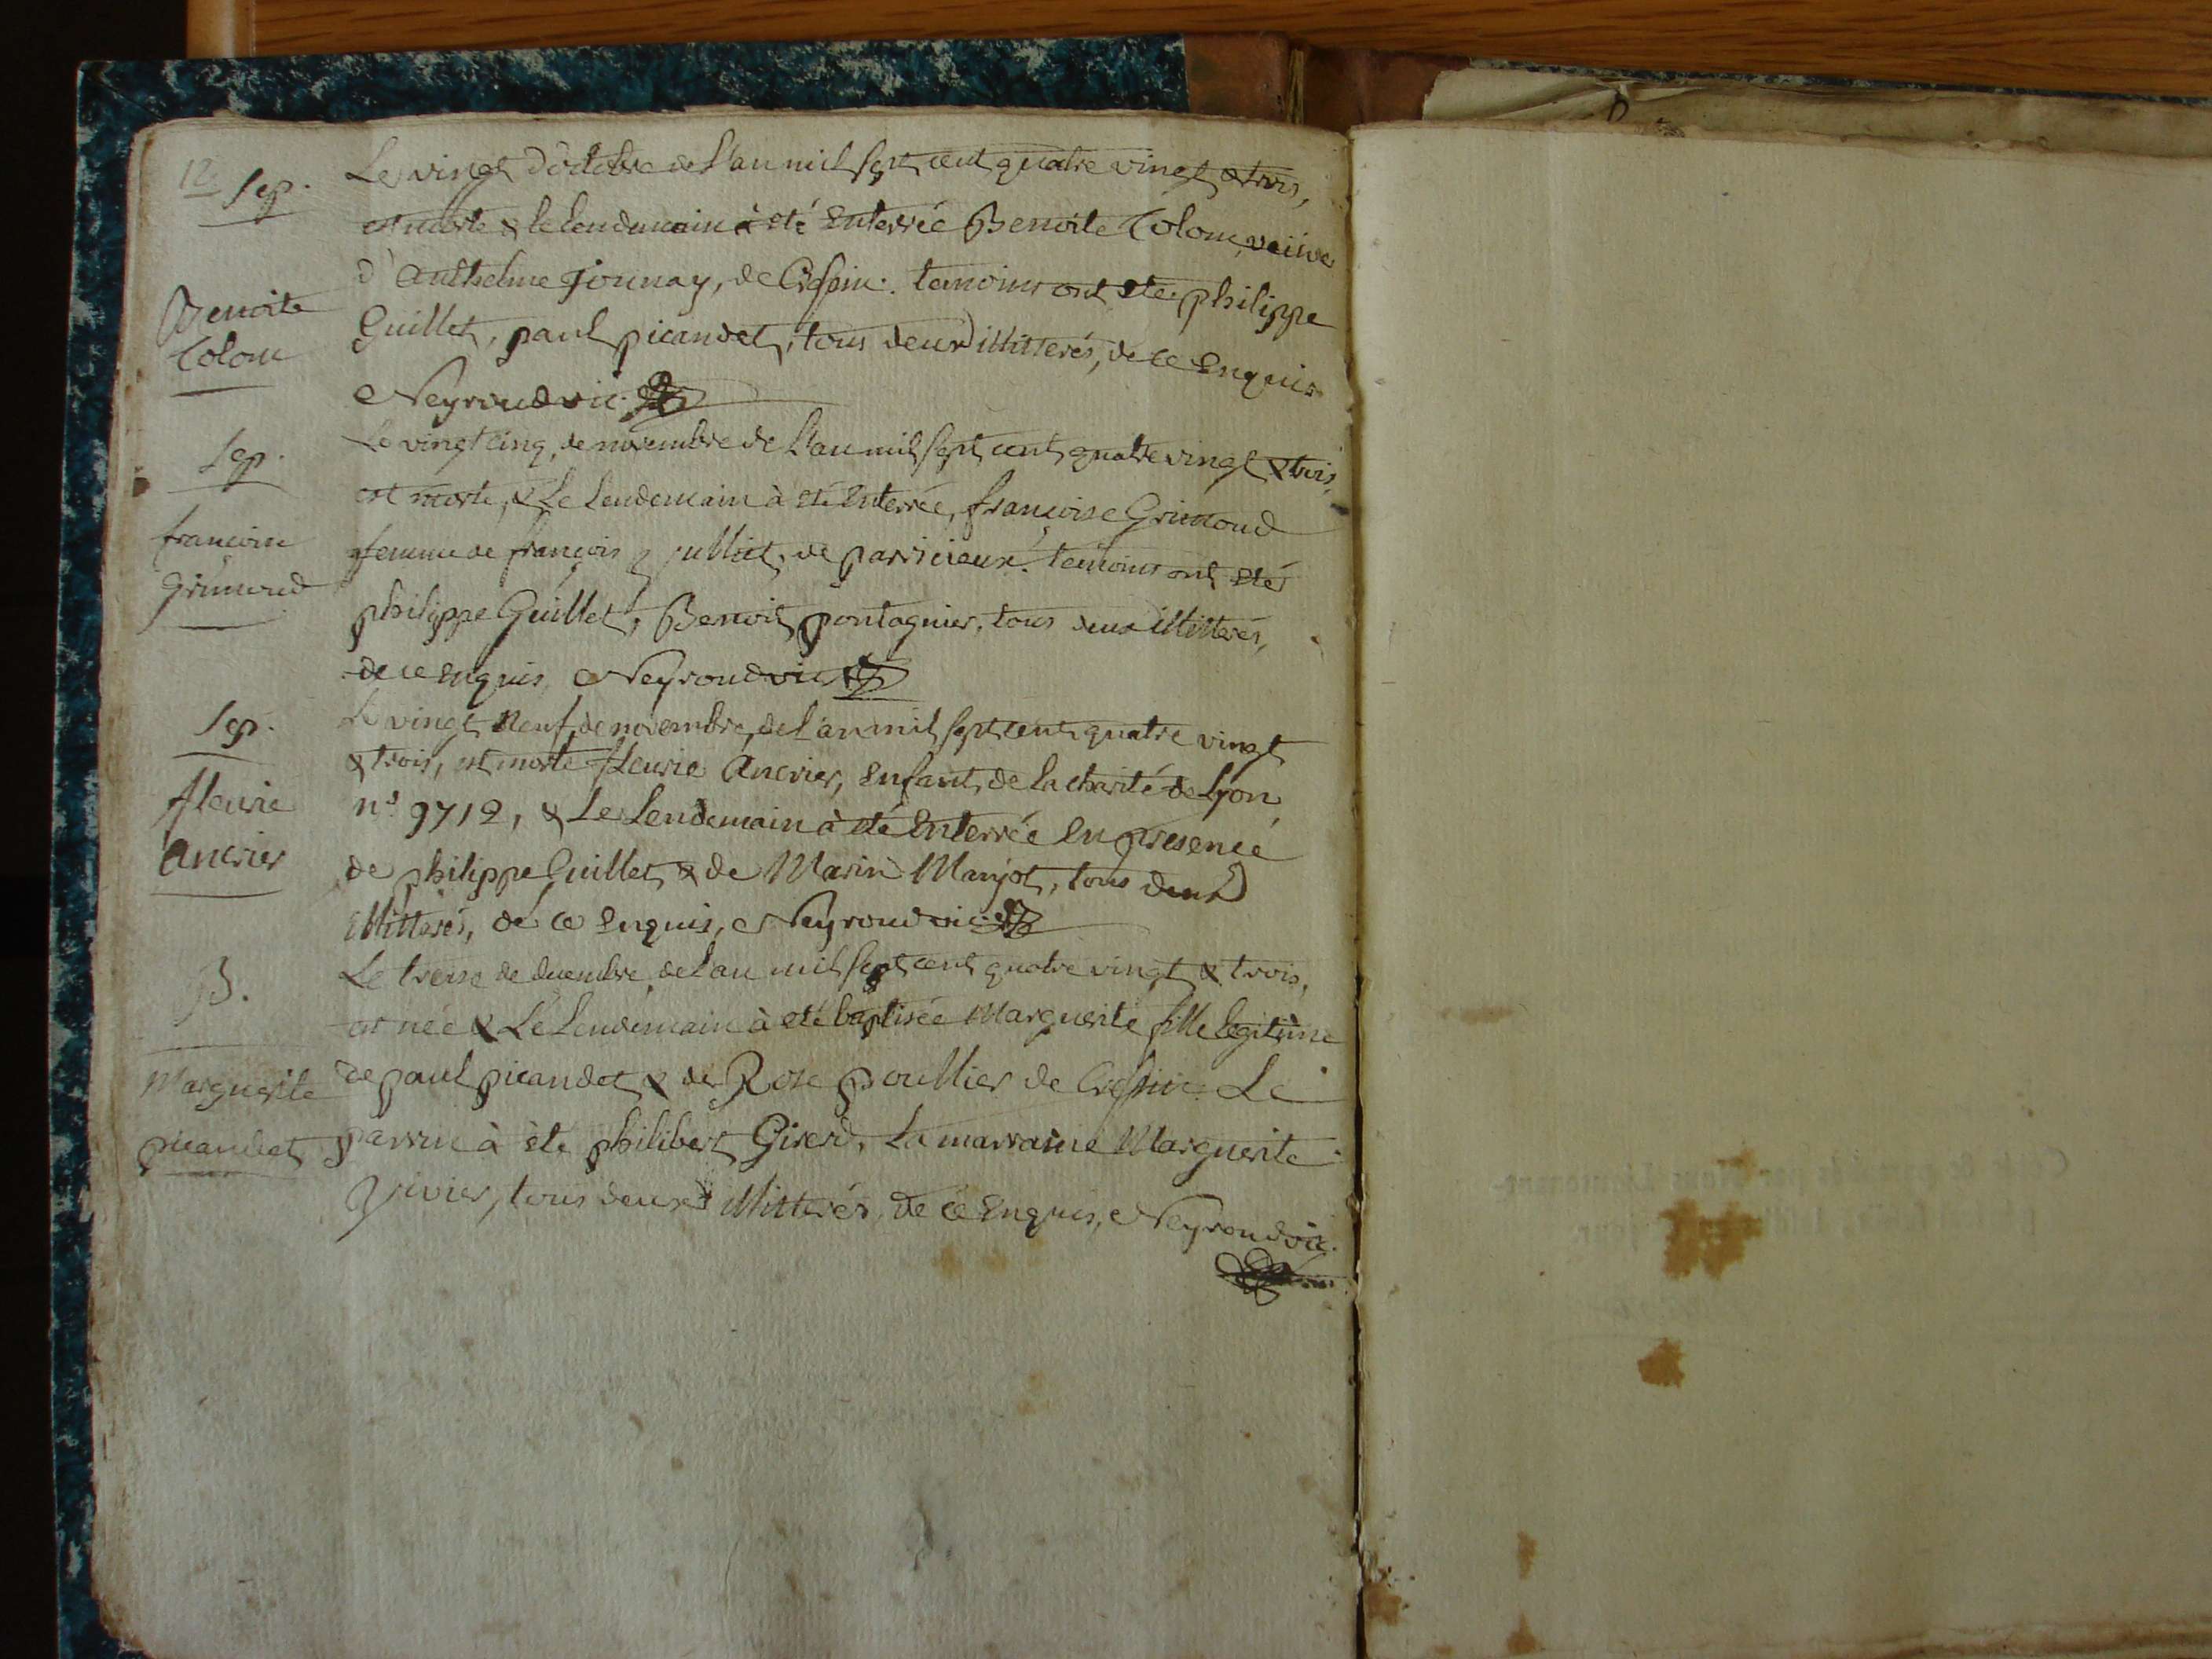 12.
Sep.
Benoite
Colom
Le vingt d'octobre de l'an mil sept cent quatre vingt & trois,
est morte & le lendemain à été enterrée Benoite Colom, veüve
d'Anthelme Jounay, de . temoins ont eté philippe
Guillet, paul picandet, tous deux illitterés, de ce enquis
Neyroud vic.
Sep.
francoise
Grimoud
Le vingt cinq, de novembre de l'an mil sept cent quatre vingt & trois,
est morte, & Le Lendemain à eté enterrée, françoise Grimoud
femme de françois jullliet, de parricieux. temoins ont etés
philippe Guillet, Benoit pontagnier, tous deux illitterés,
de ce enquis, Neyroud vic.
Sep.
fleurie
Ancrier
Le vingt Neuf, de novembre, de l'an mil sept cent quatre vingt
& trois, est morte fleurie Ancrier, enfant, de la charité de Lyon,
n° 9712, & Le Lendemain à eté enterrée en presence
de philippe Guillet, & de Marin Manjot, tous deux
illitterés, de ce enquis, Neyroud vic.
B.
Marguerite
picandet
Le treise de decembre, de l'an mil sept cent quatre vingt & trois,
est née & Le Lendemain à eté baptisée Marguerite fille legitime
de paul picandet & de Rose poullier de . Le
parrin à été philibert Girerd, La marraine Marguerite
Vivier, tous deux illitterés, de ce enquis, Neyroud vic.